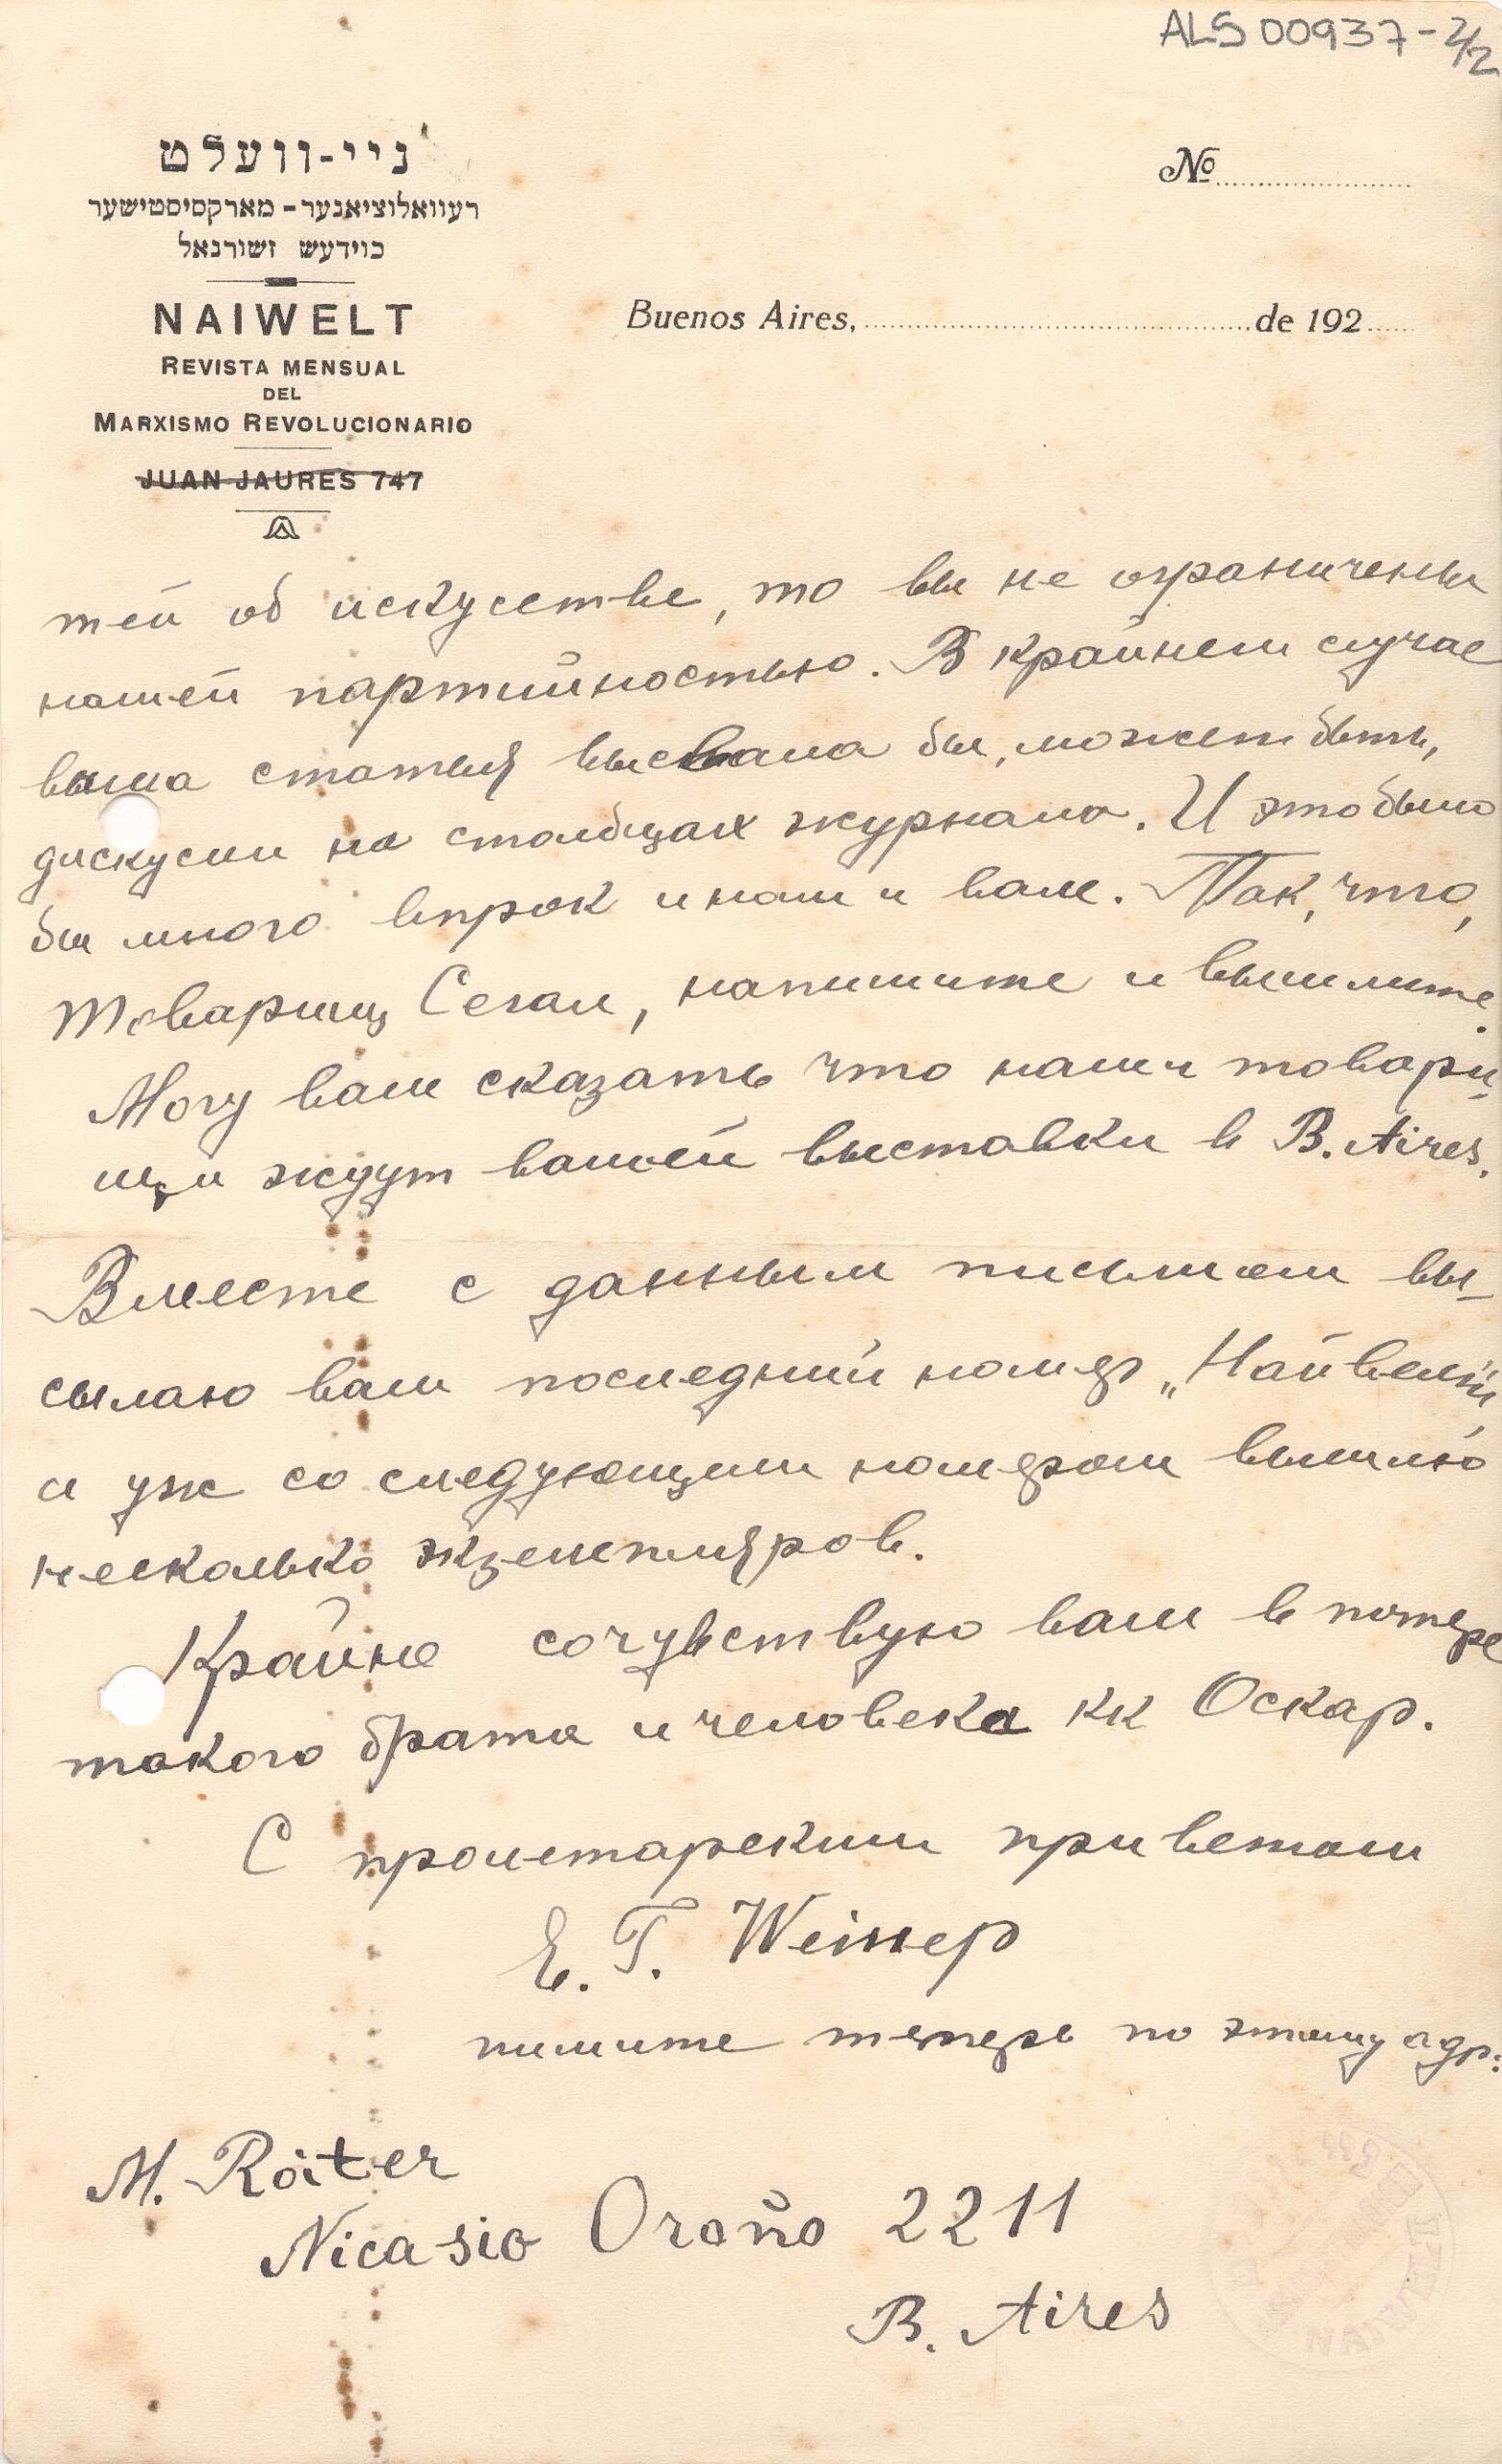 ALS 00937-2/2
ניי-וועלט
רעוואלוציאנער-מארקסיסטישער
כוידעש זשורנאל
NAIWELT
REVISTA MENSUAL
DEL
MARXISMO REVOLUCIONARIO
JUAN JAURES 747
№
Buenos Aires, de 192
тей об искусстве, то вы не ограничены
нашей партийностью. В крайнем случае
ваша статья высвала бы, может быть,
дискусии на столбцах журнала. И это было
бы много впрок и нам и вам. Так, что,
товарищ Сегал, напишите и вышлите.
Могу вам сказать что наши товари-
щи ждут вашей выставки в B. Aires.
Вместе с данным письмом вы-
сылаю вам последний номер „Найвелт"
а уж со следующим номером вышлю
несколько экземпляров.
Крайне сочувствую вам в потере
такого брата и человека кк Оскар.
С пролетарским приветом
Е. Г.
пишите теперь по этому адр:
M. Roiter
Nicasio Oroño 2211
B. Aires
NAIWELT